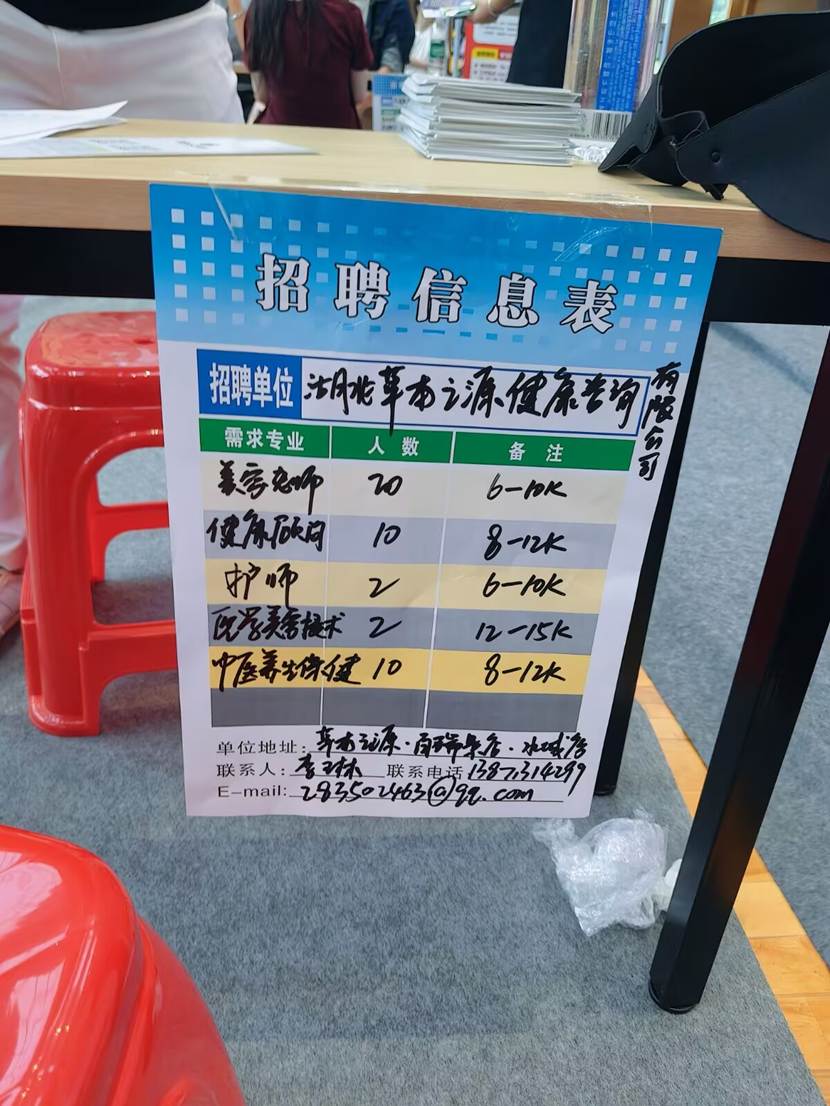 招聘信息表
招聘单位 湖北草本之源健康咨询有限公司
需求专业 人数 备注
美容老师 20 6-10K
健康顾问 10 8-12K
护师 2 6-10K
医学美容技术 2 12-15K
中医养生保健 10 8-12K
单位地址: 草本之源·百瑞景店·水域店
联系人: 李玉林 联系电话 13871314299
E-mail: 283502463@qq.com